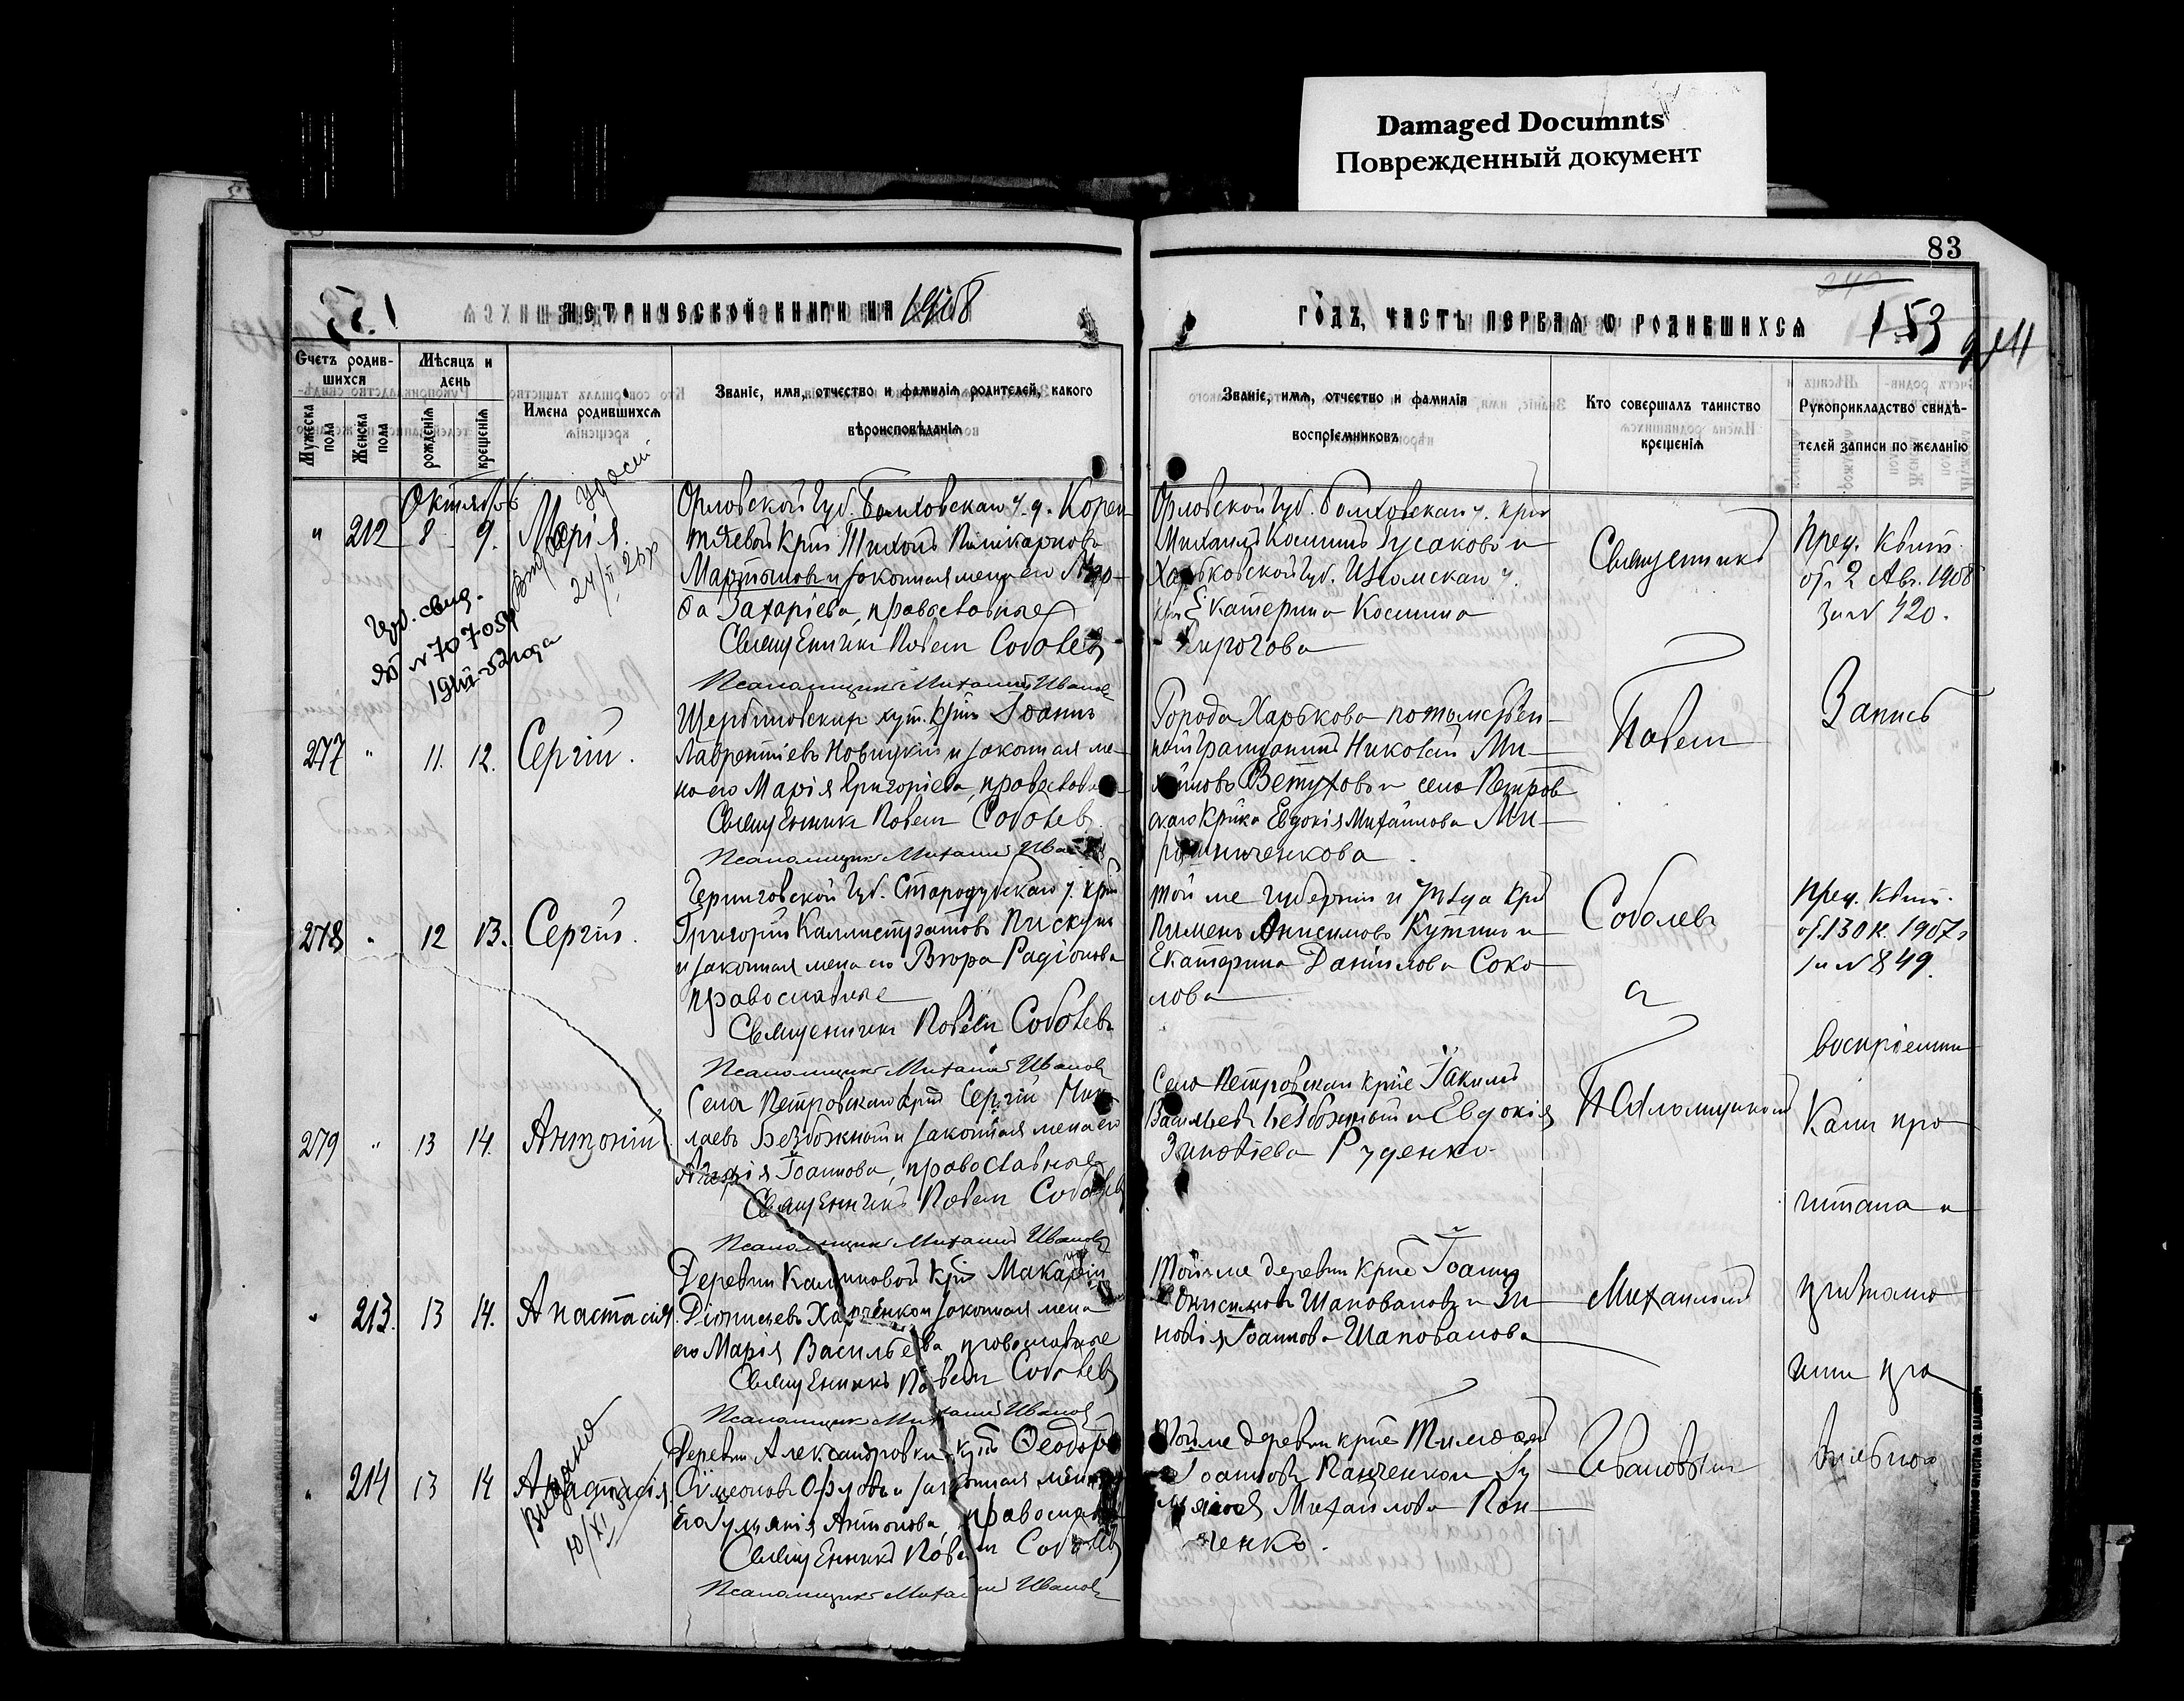 Damaged Documnts
Поврежденный документ
83
МЕТРИЧЕСКОЙ КНИГИ НА 1908
ГОДЪ, ЧАСТЬ ПЕРВАЯ О РОДИВШИХСЯ
153
Счетъ родив-
шихся
Мужеска пола
Женска пола
Мѣсяцъ и
день
рожденія
крещенія
Имена родившихся
Званіе, имя, отчество и фамилія родителей, какого
вѣроисповѣданія
Званіе, имя, отчество и фамилія
воспріемниковъ
Кто совершалъ таинство
крещенія
Рукоприкладство свидѣ-
телей записи по желанію
Октябрь
" 212 8 9. Марія.
Орловской Губ. Болховскаго у. д. Корен
Крнъ Тихонъ Поликарповъ
Мартыновъ и законная жена его
Захаріева, православные
Священникъ Павелъ Соболевъ
Псаломщикъ Михаилъ Ивановъ
Орловской Губ. Болховскаго у. крнъ
Михаилъ Косминъ Гусаковъ и
Харьковской Губ. Изюмскаго у.
Екатерина Космина
Пирогова
Священникъ
Пред. Квит.
от 2 Авг. 1908
за № 420.
277 " 11. 12. Сергій.
Щербиновскихъ хут. Крнъ Іоаннъ
Лаврентіевъ Новицкій и законная же-
на его Марія Григоріева, православ
Священникъ Павелъ Соболевъ.
Псаломщикъ Михаилъ Ивановъ
Города Харькова потомствен-
ный Гражданинъ Николай Ми-
хайловъ Ветуховъ и села Петров
скаго Крнка Евдокія Михайлова Ми-
рошниченкова
Павелъ
Запись
278 " 12 13. Сергій.
Черниговской Губ. Стародубскаго у. крнъ
Григорій Каллистратовъ Пискунъ
и законная жена его Радіонова
православные
Священникъ Павелъ Соболевъ
Псаломщикъ Михаилъ Ивановъ
Той же губерніи и уѣзда Крнъ
Пименъ Анисимовъ Кутинъ и
Екатерина Данилова Соко-
лова
Соболевъ
съ
Пред. Квит.
1907 г
за № 849.
воспріемни
279 " 13 14. Антоній
Села Петровскаго Крнъ Сергій Нико
лаевъ Безбожный и законная жена его
Іоаннова, православные
Священникъ Павелъ Соболевъ
Псаломщикъ Михаилъ Ивановъ
Села Петровскаго крне Іакимъ
Васильевъ Безбожный и Евдокія
Зиновіева Руденко.
Псаломщикомъ
ками про
читана и
" 213. 13 14. Анастасія.
Деревни Калиновой Крнъ Макарій
Діонисіевъ Харченко и законная жена
его Марія Васильева, православные
Священникъ Павелъ Соболевъ
Псаломщикъ Михаилъ Ивановъ
Той же деревни крне Іоаннъ
Онисимовъ Шаповаловъ и Зи-
новія Іоаннова Шаповалова
Михаиломъ
признано
ими пра
" 214 13 14 Анастасія
Деревни Александровки крнъ Ѳеодоръ
Сумеоновъ Орловъ и законная жена
его Іуліанія Антонова, православные
Священникъ Павелъ Соболевъ
Псаломщикъ Михаилъ Ивановъ
Той же деревни крне Тимоѳей
Іоанновъ Панченко и
Михаилова Пан-
ченко.
Ивановымъ
вильною